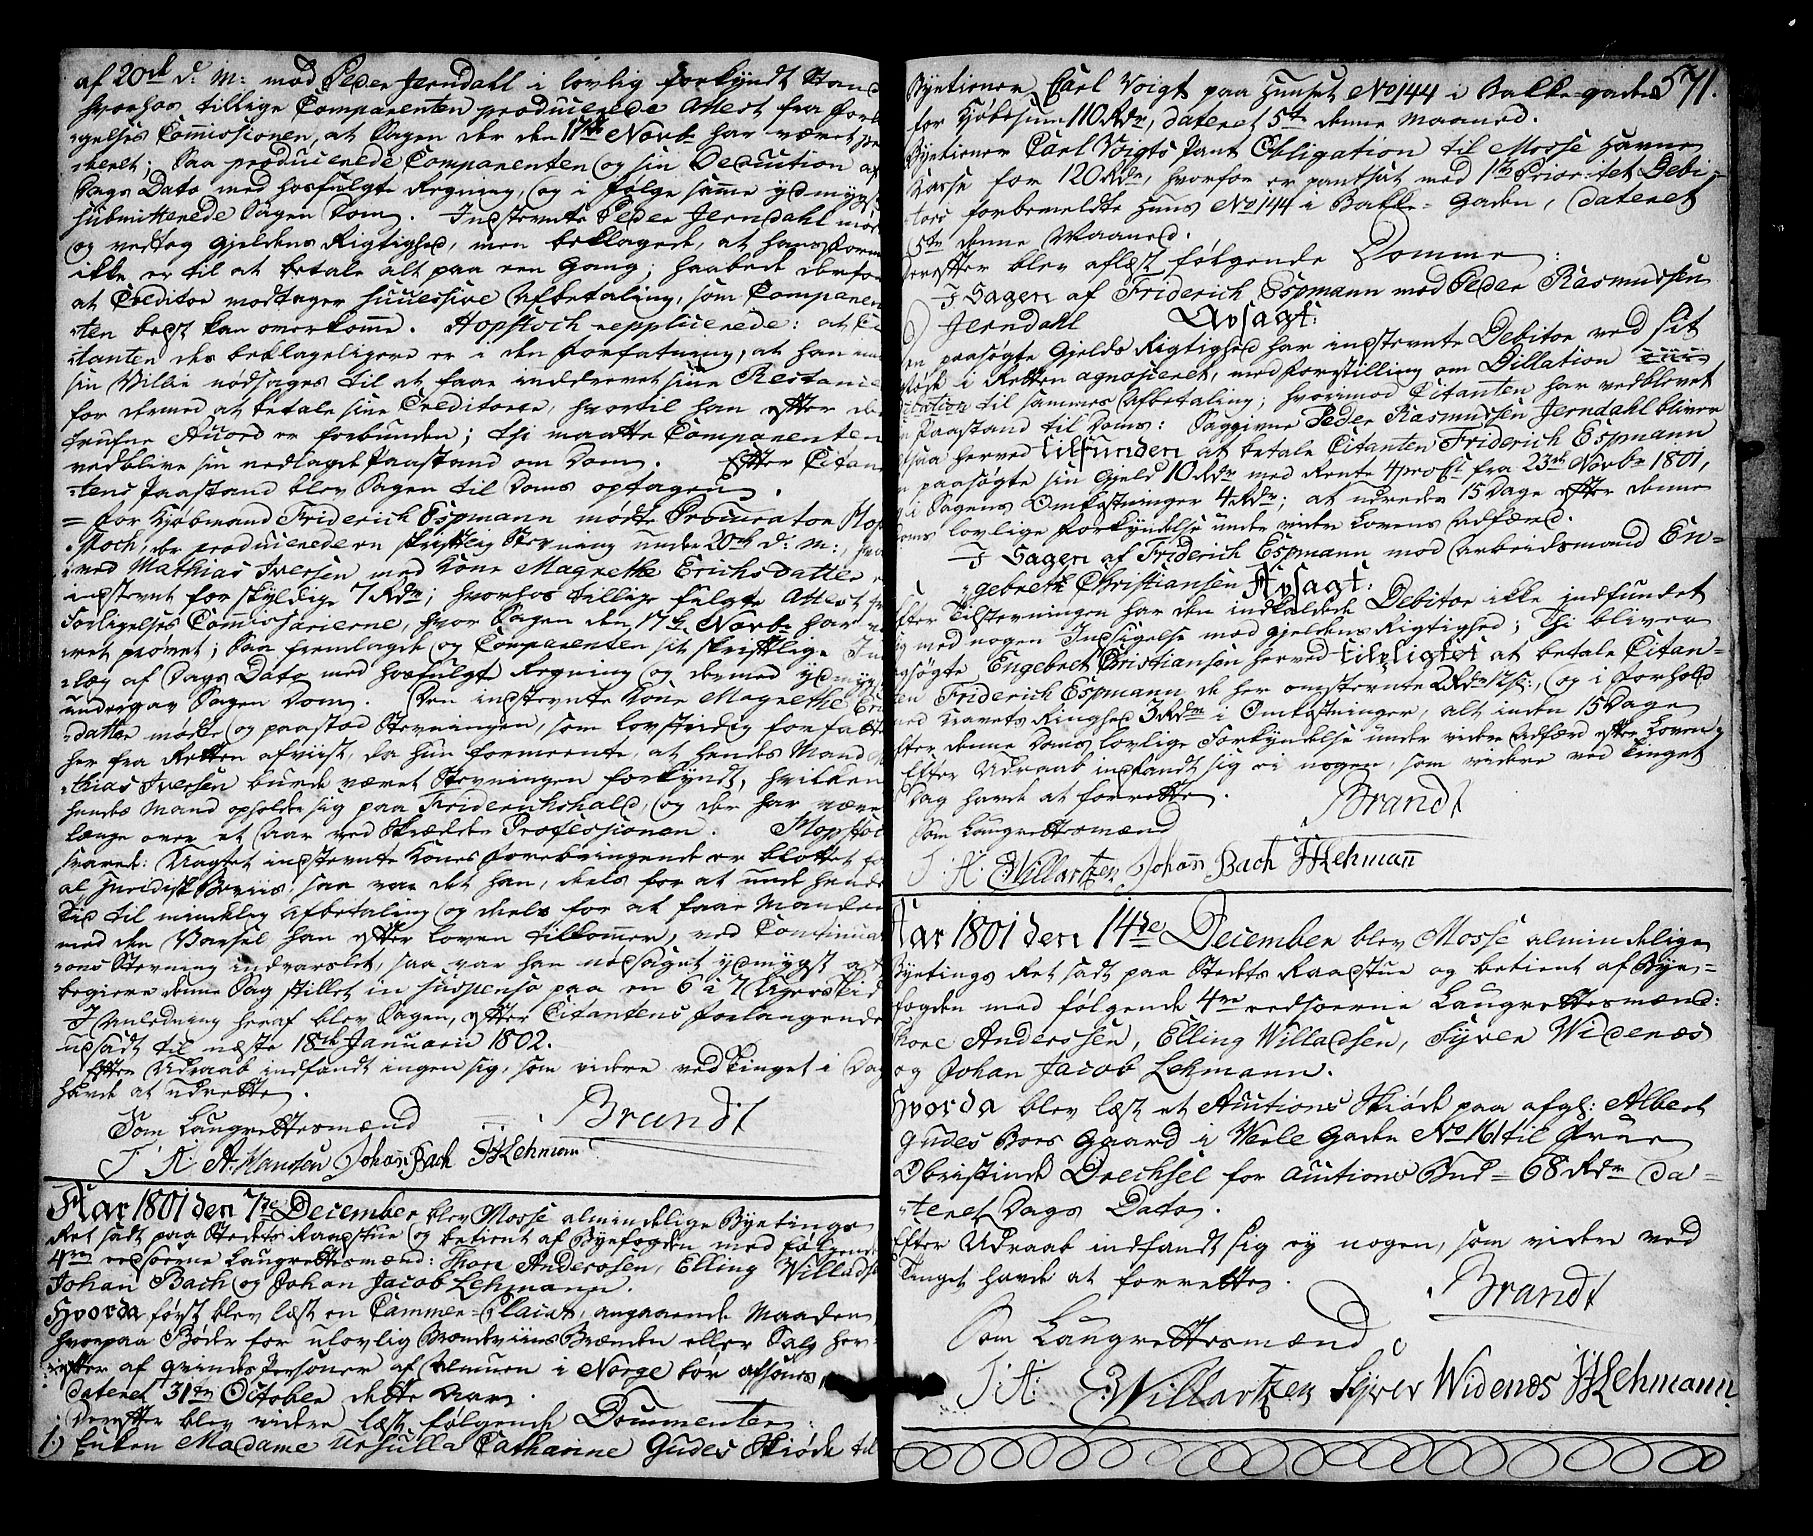 af 20de d: M: mod Peder Jerndahl i lovlig forkyndt Stand
hvorhos tillige Comparenten producerede Attest fra Forli
gelses Commissionen, at Sagen der den 17de Novbr har været
deret; Saa producerede Comparenten og sin Deduction af
Dags Dato med hosfulgte Regning, og i følge samme ydmygst
submitterede Sagen Dom. Indstevnte Peder Jerndahl mødte
og vedtog Gjeldens Rigtighed, men beklagede, at hans Form
ikke er til at betale alt paa een Gang; haabede derfor
at Creditor modtager successive Afbetaling, som Comparen-
ten best kan overkomme. Hopstoch replicerede: at Ci
tanten des beklageligere er i den forfatning, at han
sin Villie nødsages til at faae inddrevet sine Restance
for dermed at betale sine Creditorer, hvortil han efter
trufne Accord er forbunden; thi maatte Comparenten
vedblive sin nedlagde Paastand om Dom. Efter Citan
tens Paastand blev Sagen til Doms optagen.
= for Kjøbmand Friderich Espmann mødte Procurator Hop
stoch, der producerede en skriftlig Stevning under 20de d: M:,
ved Mathias Iversen med Kone Magrethe Erichsdatter
indstevnt for skyldige 7 Rdr; hvorhos tillige fulgte Attest
Forligelses Commissarierne, hvor Sagen den 17de Novbr har
ret prøvet; Saa fremlagde og Comparenten sit skriftlige Ind
læg af Dags Dato med hosfulgte Regning og dermed ydmygst
undergav Sagen Dom. Den indstevnte Kone Magrethe Erichs
datter mødte og paastod Stevningen, som lovstridig forfattet
her fra Retten afviist, da hun formeente, at hendes Mand
thias Iversen burde været Stevningen forkyndt, hvilken
hendes Mand opholder sig paa Friderichshald, og der har været
længe over et Aar ved Skrædder Professionen. Hopstoch
svarede: Uagtet indstevnte Kones forebringende er blottet for
al Juridisk Beviis, saa var det han, deels for at unde hende
Tid til mindelig Afbetaling og deels for at faae Manden
med den Varsel han efter loven tilkommer, ved Continuati
ons Stevning indvarslet, saa var han nødsaget ydmygst at
begiere denne Sag stillet in suspenso paa en 6 à 7 Ugers Tid
I Anledning heraf blev Sagen, efter Citantens forlangende
udsadt til næste 18de Januarii 1802.
Efter Udraab indfandt ingen sig, som videre ved Tinget i Dag
havde at udrette.
Som Laugrettesmænd Brandt
T A A: Hansen Johan Bach JJLehmann
Aar 1801 den 7de December blev Mosse almindelige Byetings
Ret sadt paa Stedets Raadstue og betient af Byefogden med følgende
4re eedsoerne Laugrettesmænd: Thore Anderssen, Elling Willadsen
Johan Bach og Johan Jacob Lehmann.
Hvorda først blev læst en Cammer-Placat, angaaende Maaden
hvorpaa Bøder for ulovlig Brændeviins Brænden eller Salg her-
efter af Qvindes Personer af Almuen i Norge bør afsones,
dateret 31te October dette Aar.
Derefter blev videre læst følgende Documenter:
1.) Enken Madame Ursulla Catharine Gudes Skiøde til
571.
Byetiener Carl Voigt paa Huuset No 144 i Bakke-gaden
for Kjøbesum 110 Rdr, dateret 5te denne Maaned.
Byetiener Carl Voigts Pant Obligation til Mosse Havne
Kasse for 120 Rdr, hvorfor er pantsat med 1ste Prioritet Debi-
tors forbemeldte Huus No 144 i Bakke-Gaden, dateret
5te denne Maaned.
Derefter blev aflæst følgende Domme:
I Sagen af Friderich Espmann mod Peder Rasmussen
Jerndahl Afsagt:
Den paasøgte Gjelds Rigtighed har indstevnte Debitor ved sit
Møde i Retten agnosceret, med forestilling om Dillation
til sammes Afbetaling; hvorimod Citanten har vedblevet
Paastand til Doms: Saggivne Peder Rasmussen Jerndahl bliver
altsaa herved tilfunden at betale Citanten Friderich Espmann
paasøgte sin Gjeld 10 Rdr med Rente 4 proCt fra 23de Novbr 1801,
og i Sagens Omkostninger 4 Rdr; at udrede 15 Dage efter denne
Doms lovlige Forkyndelse under videre Lovens Adfærd.
I Sagen af Friderich Espmann mod Arbeidsmand En-
gebreth Christiansen Afsagt:
Efter Tilstevningen har den indkaldede Debitor ikke indfundet
sig med nogen Indsigelse mod Gjeldens Rigtighed; Thi bliver
sagsøgte Engebret Christiansen herved tilpligtet at betale Citan-
ten Friderich Espmann de her omstevnte 2 Rdr 12 s:, og i forhold
med Kravets Ringhed 3 Rdr i Omkostninger, alt inden 15 Dage
efter denne Doms lovlige Forkyndelse under videre Adfærd efter Loven.
Efter Udraab indfandt sig ei nogen, som videre ved Tinget
Dag havde at forrette. Brandt
Som Laugrettesmænd
T. A: EWillartzen Johan Bach JJLehmann
Aar 1801 den 14de December blev Mosse almindelige
Byetings Ret sadt paa Stedets Raadstue og betient af Bye-
fogden med følgende 4re eedsoerne Laugrettesmænd:
Thore Anderssen, Elling Willadsen, Syver Widenæs
og Johan Jacob Lehmann.
Hvorda blev læst et Auctions Skiøde paa afgl: Albert
Gudes Boes Gaard i Verle Gaden No 161 til Frue
Obristinde Drechsel for Auctions Bud = 68 Rdr da-
teret Dags Dato.
Efter Udraab indfandt sig ey nogen, som videre ved
Tinget havde at forrette. Brandt
Som Laugrettesmænd
T: A: EWillartzen Syver Widenæs JJLehmann